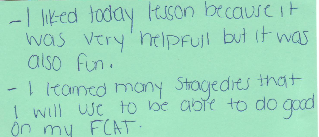 - I liked today lesson because it
was very helpfull but it was
also fun.
- I learned many stragedies that
I will use to be able to do good
on my FCAT.